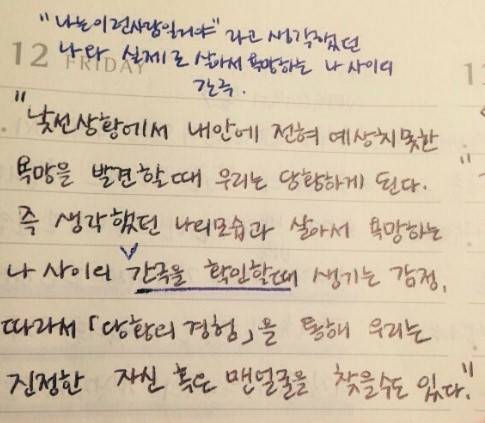 "나는 이런사람일거야" 라고 생각했던
나와 실제로 살아서 욕망하는 나 사이의
간극.
12 FRIDAY
"낯선상황에서 내안에 전혀 예상치못한
욕망을 발견할때 우리는 당황하게 된다.
즉 생각했던 나의모습과 살아서 욕망하는
나 사이의 간극을 확인할때 생기는 감정,
따라서 「당황의 경험」을 통해 우리는
진정한 자신 혹은 맨얼굴을 찾을수도 있다."